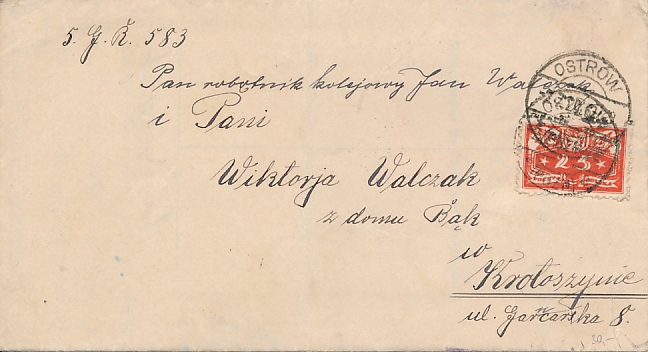 5. G. R. 583
Pan robotnik kolejowy Jan Walczak
i Pani
Wiktorja Walczak
z domu Bąk
w
Krotoszynie
ul. Garcarska 8.
OSTRÓW
* 23 *
30,-